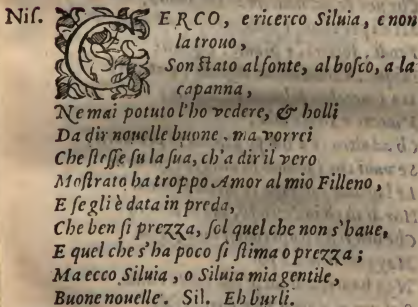 Nis. CERCO, e ricerco Siluia, e non
la trouo,
Son stato al fonte, al bosco, a la
capanna,
Ne mai potuto l'ho vedere, & holli
Da dir nouelle buone. ma vorrei
Che stesse su la sua, ch'a dir il vero
Mostrato ha troppo Amor al mio Filleno,
E se gli è data in preda,
Che ben si prezza, sol quel che non s'haue,
E quel che s'ha poco si stima o prezza;
Ma ecco Siluia, o Siluia mia gentile,
Buone nouelle. Sil. Eh burli.